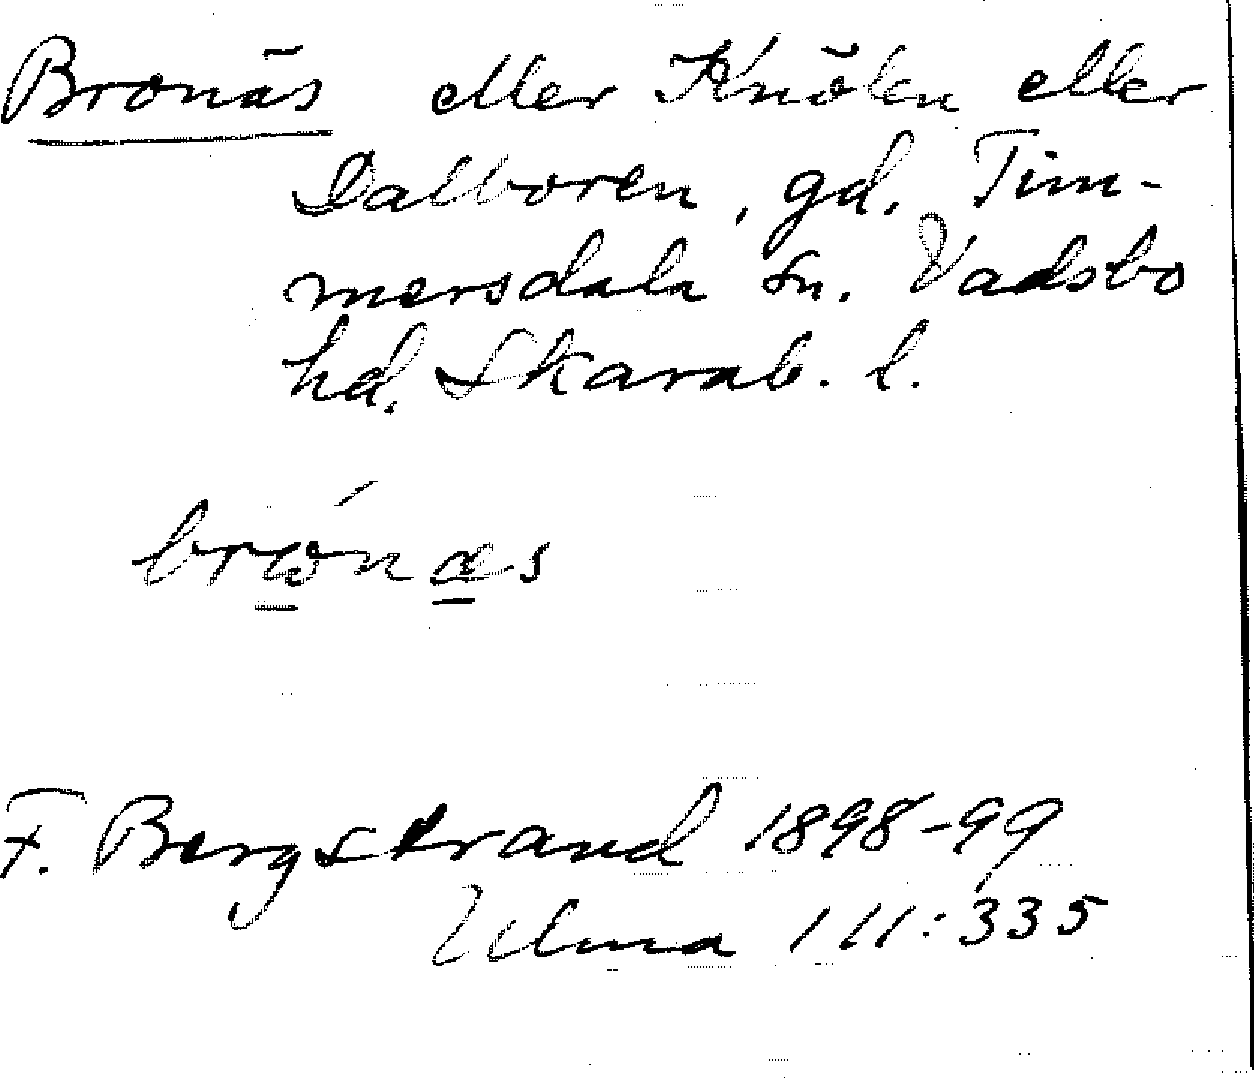 Bronäs eller Knölen eller
Dalboren, gd. Tim-
mersdala sn. Vadsbo
hd. Skarab. l.
brώnæs
F. Bergstrand 1898-99
Ulma 111:335